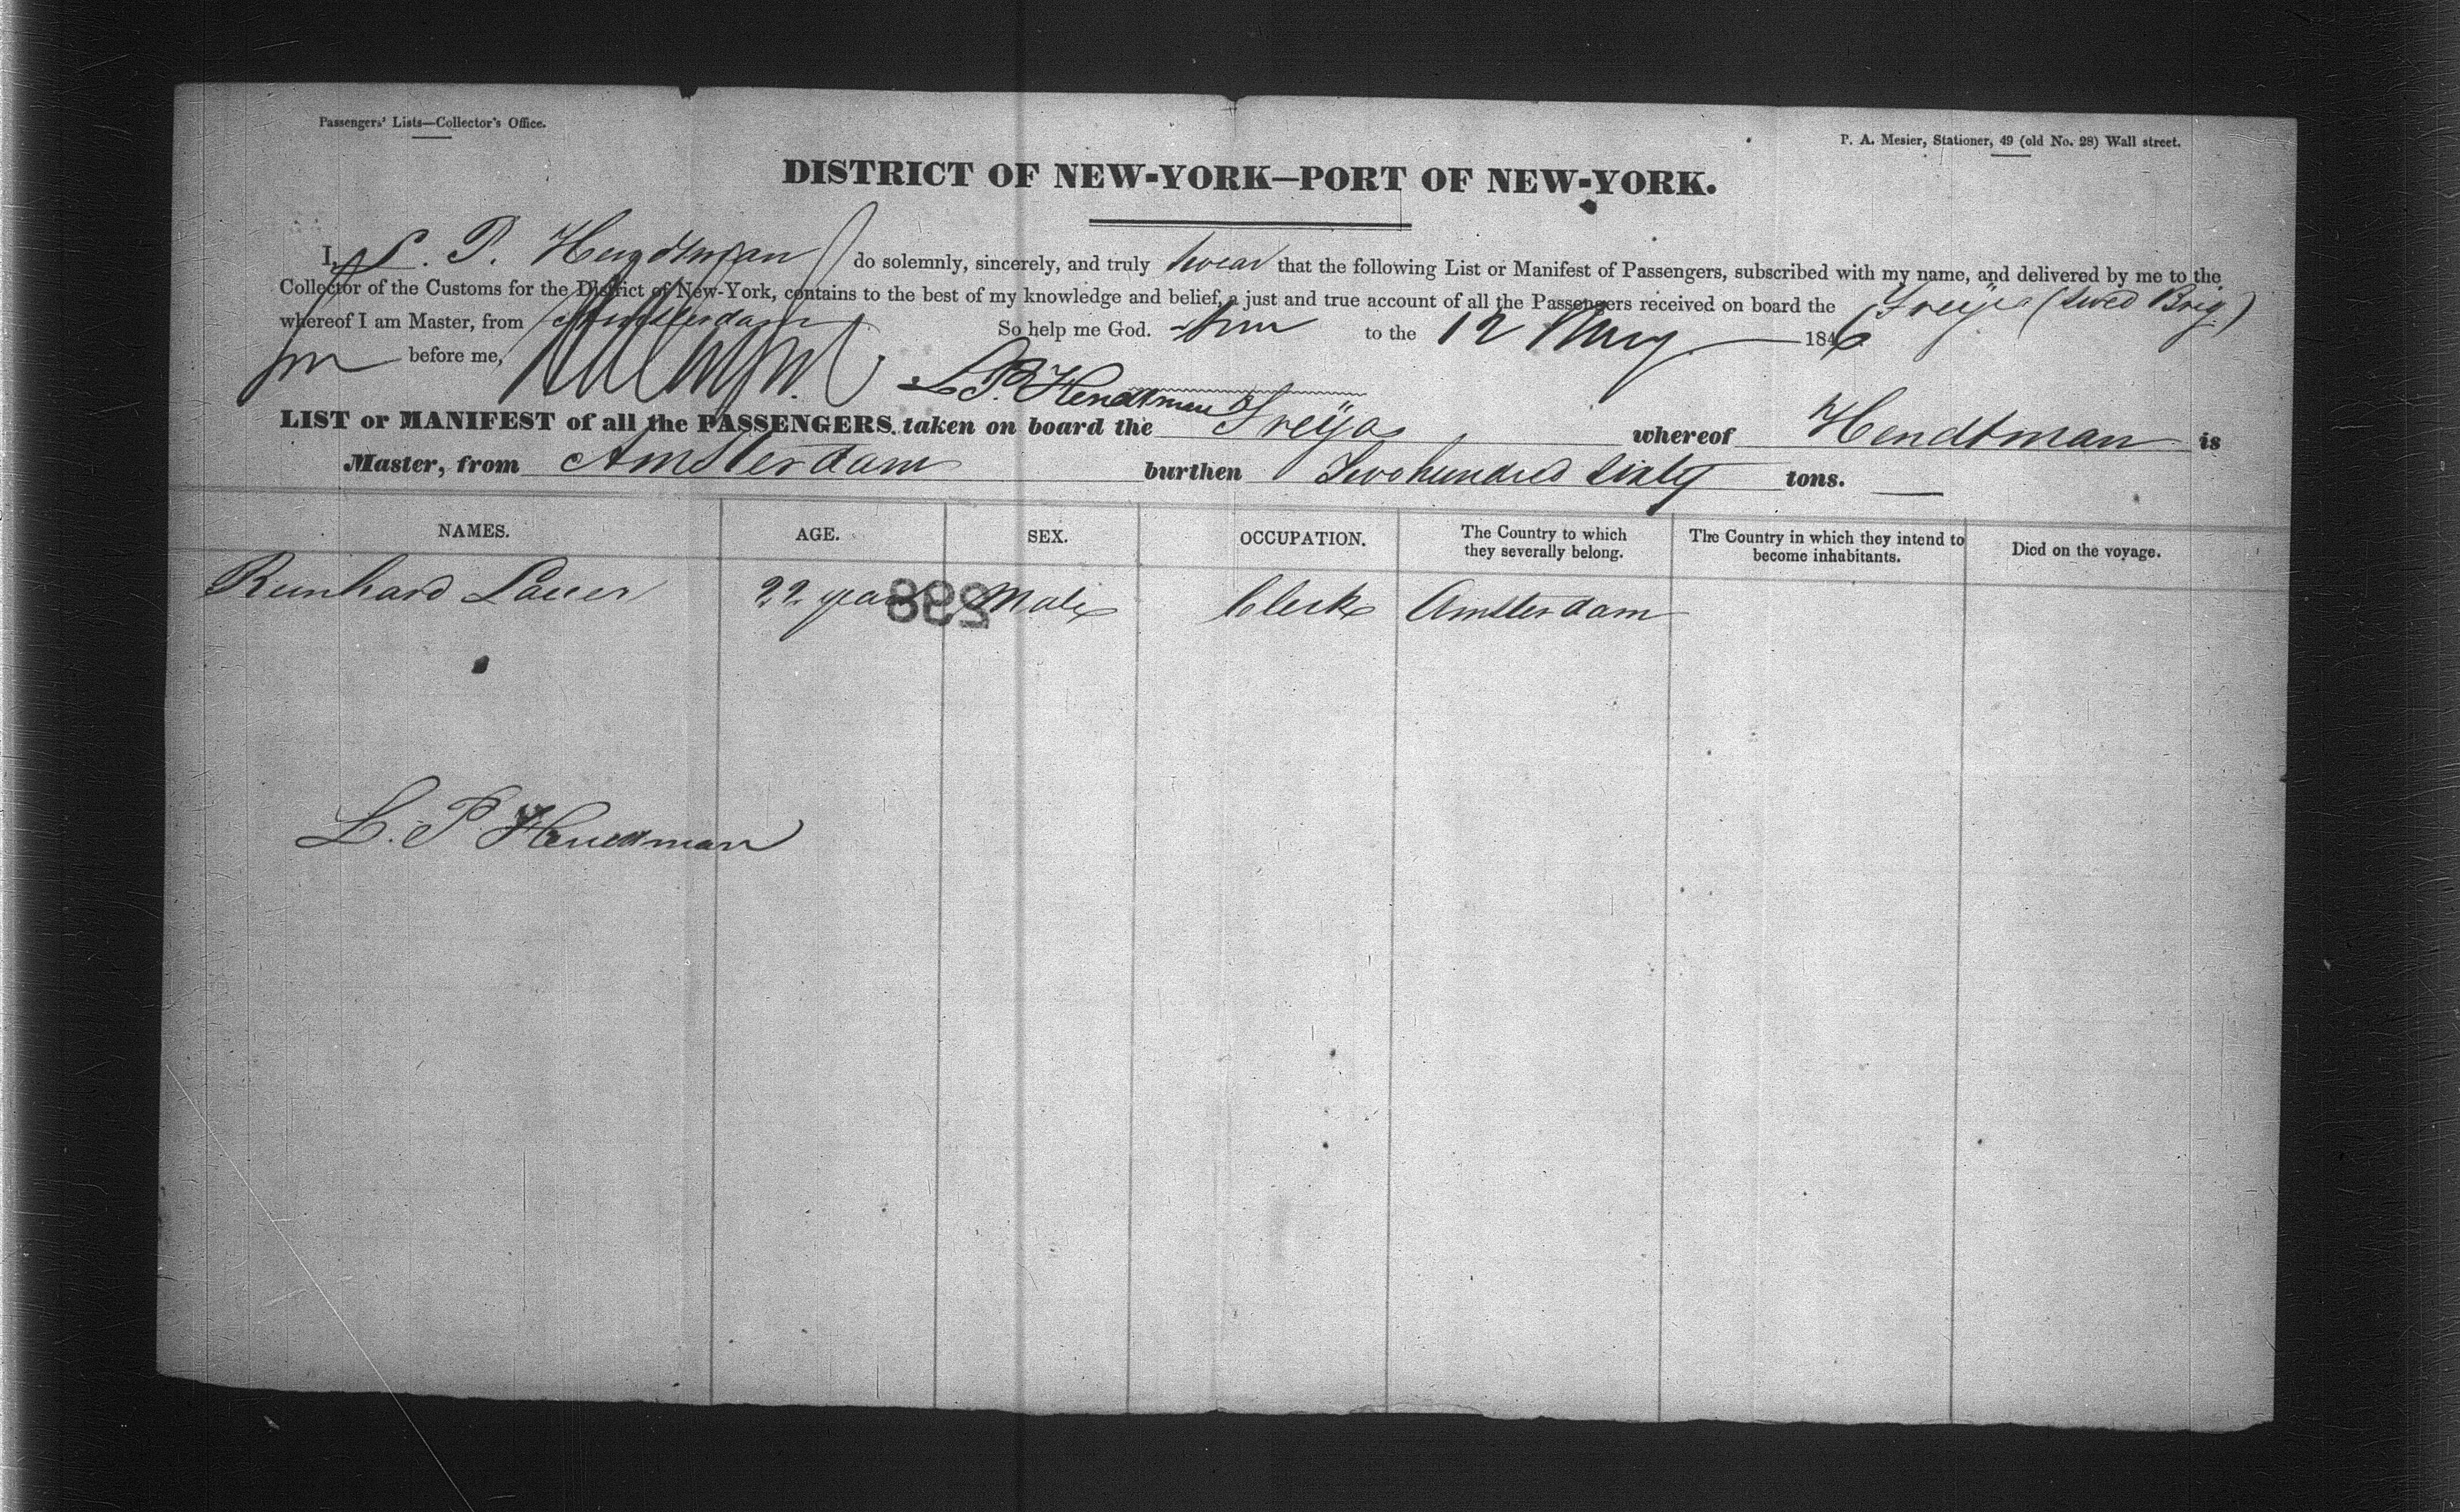 Passengers' Lists—Collector's Office.
P. A. Mesier, Stationer, 49 (old No. 28) Wall street.
DISTRICT OF NEW-YORK—PORT OF NEW-YORK.
I, L. P. Hendtman do solemnly, sincerely, and truly swear that the following List or Manifest of Passengers, subscribed with my name, and delivered by me to the
Collector of the Customs for the District of New-York, contains to the best of my knowledge and belief, a just and true account of all the Passengers received on board the Freÿa (Swed Brig)
whereof I am Master, from Amsterdam So help me God. to the 12 May 1846
before me,
L. P. Hendtman
LIST or MANIFEST of all the PASSENGERS taken on board the Freÿa whereof Hendtman is
Master, from Amsterdam burthen Two hundred sixty tons.
NAMES. AGE. SEX. OCCUPATION. The Country to which they severally belong. The Country in which they intend to become inhabitants. Died on the voyage.
Reinhard Lauer 22 years Male Clerk Amsterdam
L. P. Hendtman